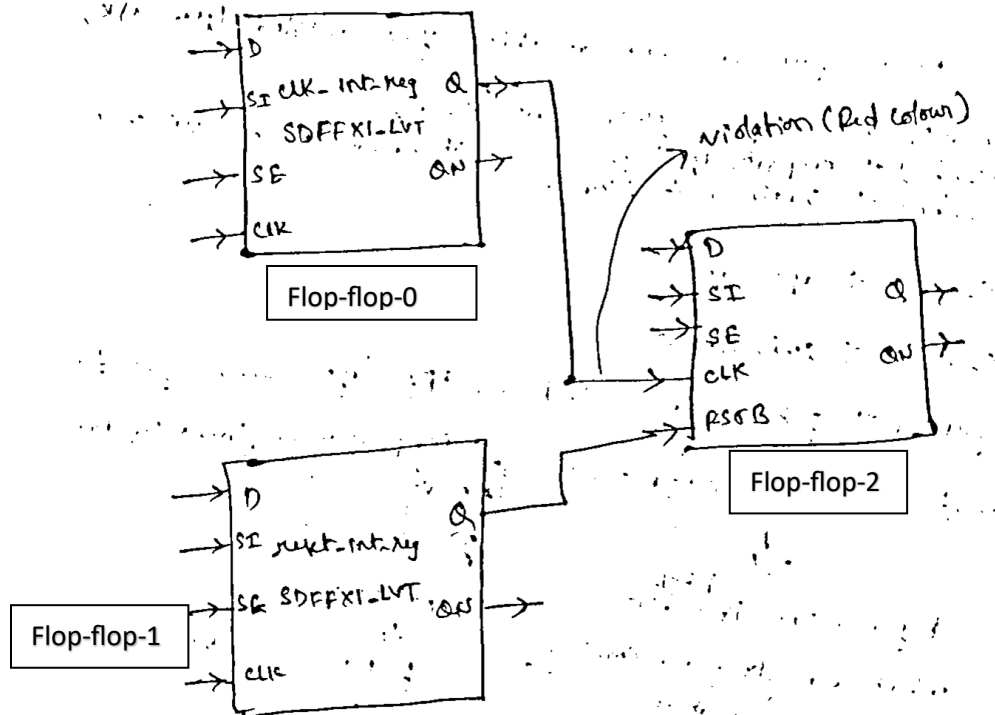 D
SI clk_int_reg Q
SDFFX1_LVT
SE QN
CLK
Flop-flop-0
violation (Red colour)
D
SI Q
SE
QN
CLK
RSTB
Flop-flop-2
D
Q
SI reset_int_reg
SE SDFFX1_LVT QN
Flop-flop-1
CLK